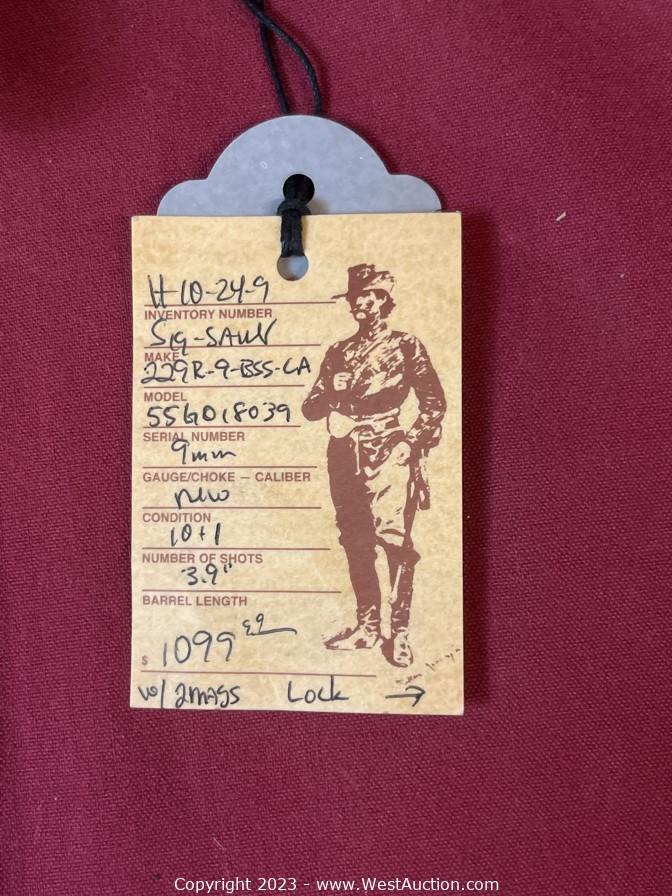 H-10-24-9
INVENTORY NUMBER
Sig-SAUER
MAKE
229R-9-BSS-CA
MODEL
55G018039
SERIAL NUMBER
9mm
GAUGE/CHOKE — CALIBER
new
CONDITION
10+1
NUMBER OF SHOTS
3.9"
BARREL LENGTH
$ 1099 99
w/ 2mags Lock →
Copyright 2023 - www.WestAuction.com